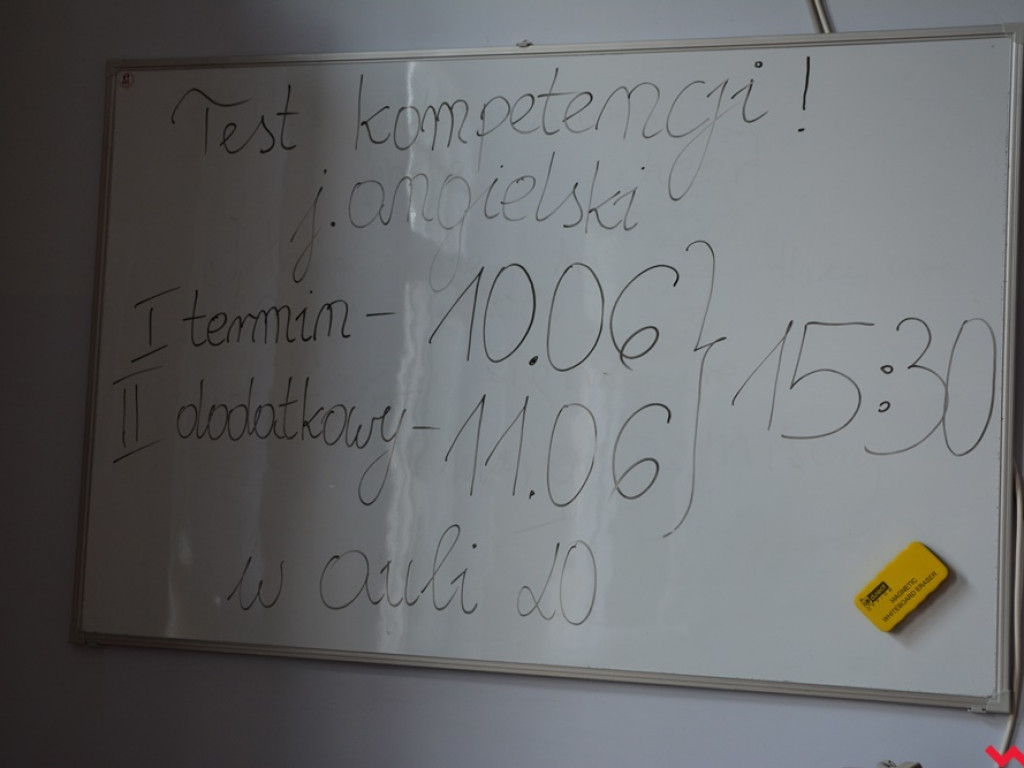 Test kompetencji!
j. angielski
I termin - 10.06
II dodatkowy - 11.06
} 15:30
w auli LO
MAGNETIC
WHITEBOARD ERASER